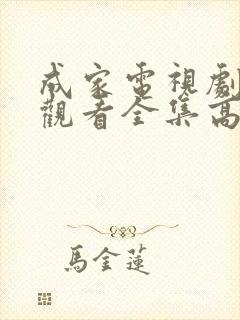 成家電視劇
觀看全集高
馬金蓮